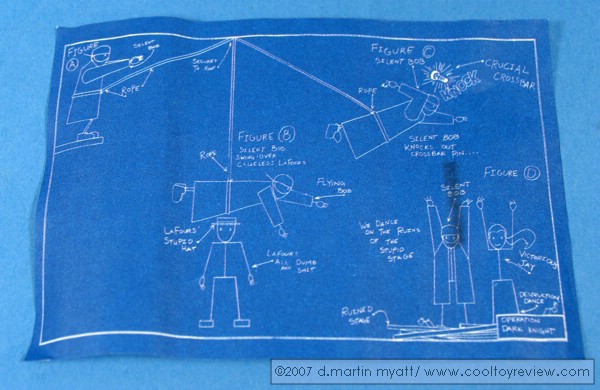 FIGURE
A
SILENT
BOB
SECURED
TO ROOF
ROPE
FIGURE C
SILENT BOB
KNOCK
CRUCIAL
CROSSBAR
ROPE
SILENT BOB
KNOCKS OUT
CROSSBAR PIN....
FIGURE B
SILENT BOB
SWINGS OVER
CLUELESS LAFOURS
ROPE
FLYING
BOB
LAFOURS'
STUPID
HAT
LAFOURS
ALL DUMB
AND SHIT
FIGURE D
SILENT
BOB
WE DANCE
ON THE RUINS
OF THE
STUPID
STAGE
VICTORIOUS
JAY
DESTRUCTION
DANCE
RUINED
STAGE
OPERATION
DARK KNIGHT
©2007 d.martin myatt/ www.cooltoyreview.com